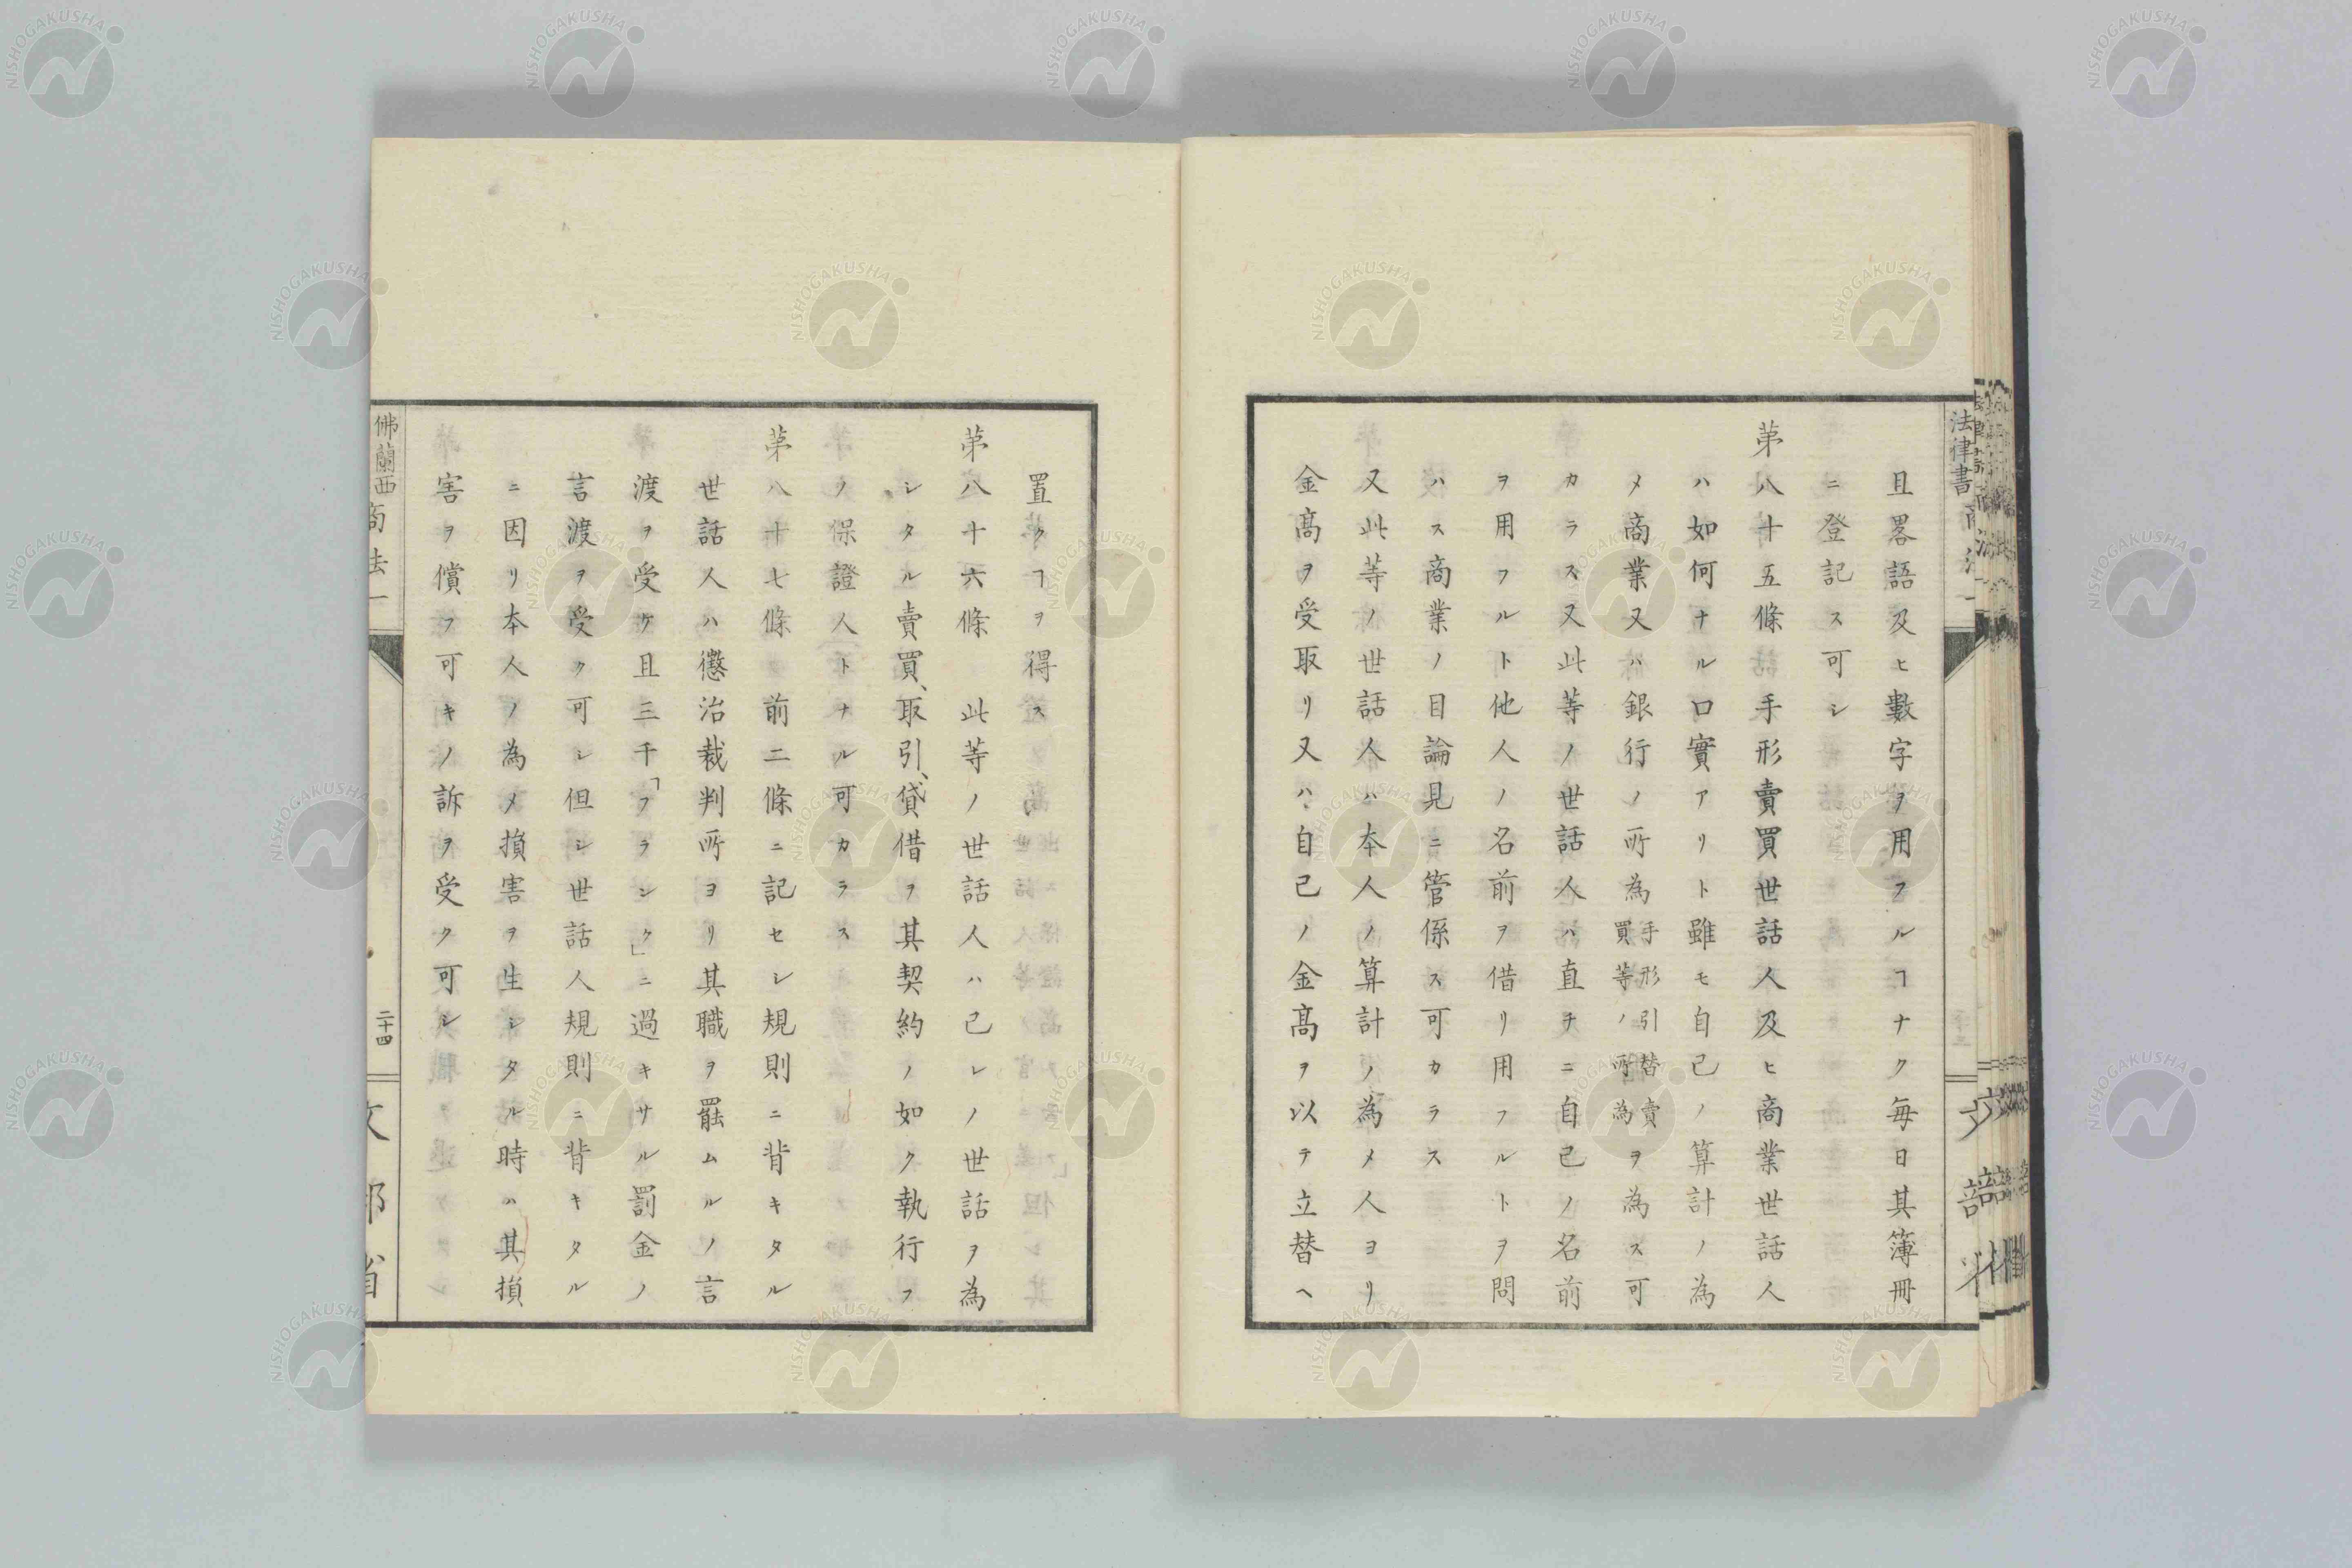 且畧語及ヒ數字ヲ用フルヿナク毎日其簿冊
ニ登記ス可シ
苐八十五條手形賣買世話人及ヒ商業世話人
ハ如何ナル口實アリト雖モ自己ノ算計ノ為
メ商業又ハ銀行ノ所為手形引替賣買等ノ所為ヲ為ス可
カラス又此等ノ世話人ハ直チニ自己ノ名前
ヲ用フルト他人ノ名前ヲ借リ用フルトヲ問
ハス商業ノ目論見ニ管係ス可カラス
又此等ノ世話人ハ本人ノ算計ノ為メ人ヨリ
金髙ヲ受取リ又ハ自己ノ金髙ヲ以テ立替ヘ
置クヿヲ得ス
苐八十六條 此等ノ世話人ハ己レノ世話ヲ為
シタル賣買、取引、貸借ヲ其契約ノ如ク執行フ
ノ保證人トナル可カラス
苐八十七條 前二條ニ記セシ規則ニ背キタル
世話人ハ懲治裁判所ヨリ其職ヲ罷ムルノ言
渡ヲ受ケ且三千「フランク」ニ過キサル罰金ノ
言渡ヲ受ク可シ但シ世話人規則ニ背キタル
ニ因リ本人ノ為メ損害ヲ生シタル時ハ其損
害ヲ償フ可キノ訴ヲ受ク可シ
佛蘭西商法一
二十四
文部省
法律書
NISHOGAKUSHA